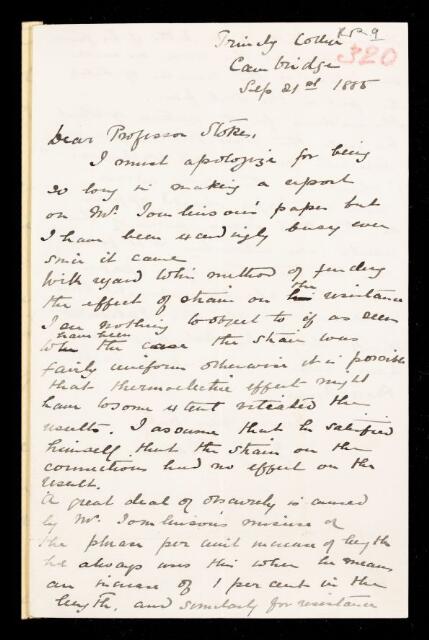 R.R. 9
320
Trinity College
Cambridge
Sep 21st 1885
Dear Professor Stokes,
I must apologize for being
so long in making a report
on Mr. Tomlinson's paper but
I have been exceedingly busy ever
since it came
With regard to his method of finding
the effect of strain on the resistance
I see nothing to object to if as seems
to have been the case the strain was
fairly uniform otherwise it is possible
that thermoelectric effect might
have to some extent vitiated the
results. I assume that he satisfied
himself that the strain on the
connections had no effect on the
result.
A great deal of obscurity is caused
by Mr. Tomlinson's misuse of
the phrase per unit increase of length
he always uses this when he means
an increase of 1 per cent in the
length, and similarly for resistance